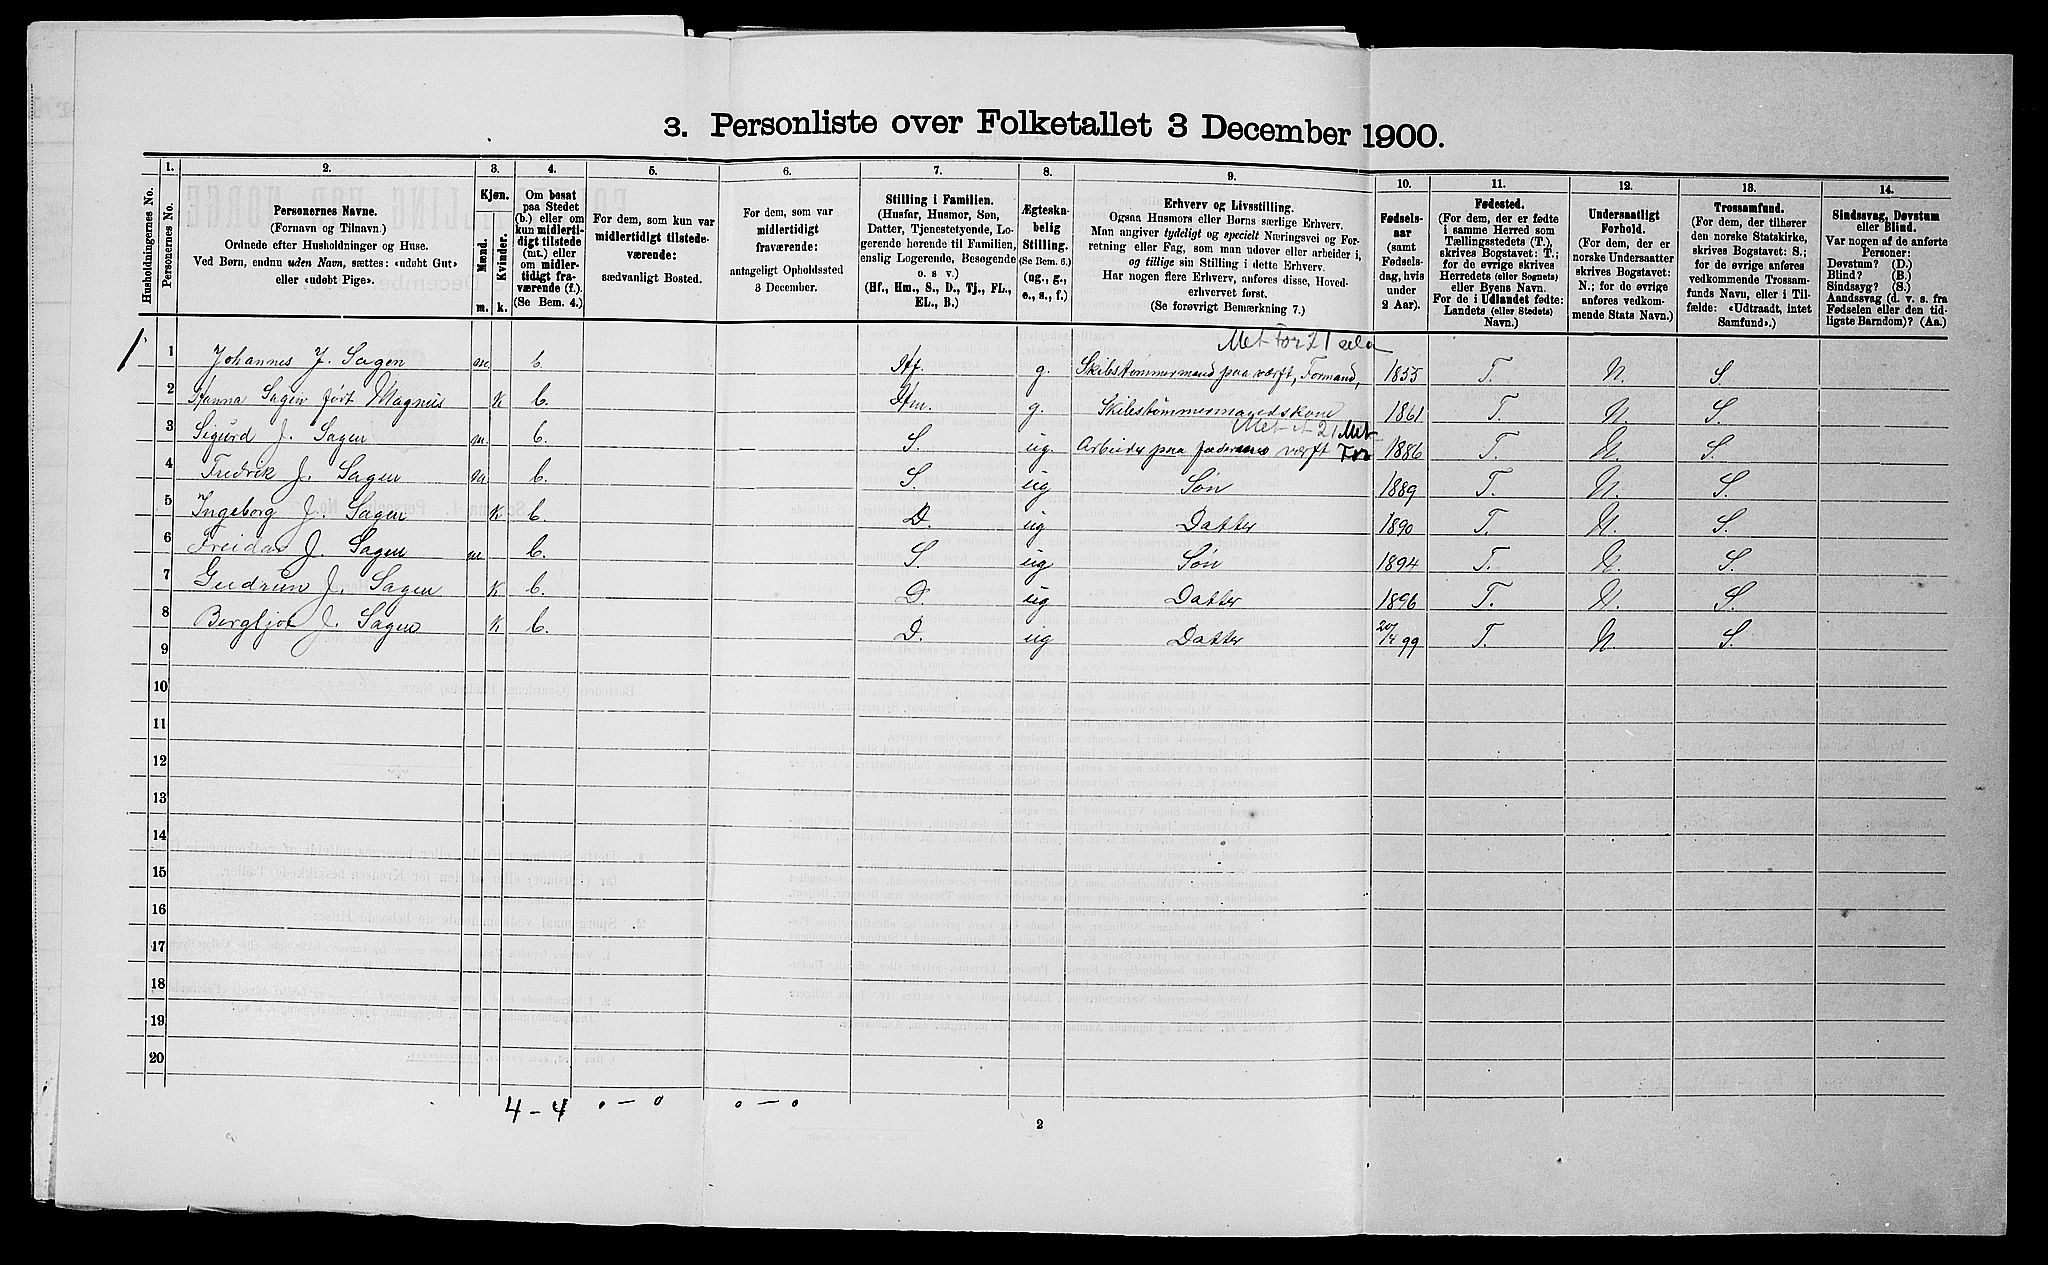 3. Personliste over Folketallet 3 December 1900.
Husholdningernes No.
1.
Personernes No.
2.
Personernes Navne.
(Fornavn og Tilnavn.)
Ordnede efter Husholdninger og Huse.
Ved Børn, endnu uden Navn, sættes: «udøbt Gut»
eller «udøbt Pige».
3.
Kjøn.
Mænd.
Kvinder.
m.
k.
4.
Om bosat
paa Stedet
(b.) eller om
kun midlerti-
digt tilstede
(mt.) eller
om midler-
tidigt fra-
værende (f.).
(Se Bem. 4.)
5.
For dem, som kun var
midlertidigt tilstede-
værende:
sædvanligt Bosted.
6.
For dem, som var
midlertidigt
fraværende:
antageligt Opholdssted
3 December.
7.
Stilling i Familien.
(Husfar, Husmor, Søn,
Datter, Tjenestetyende, Lo-
gerende hørende til Familien,
enslig Logerende, Besøgende
o. s. v.)
(Hf., Hm., S., D., Tj., FL.,
EL., B.)
8.
Ægteska-
belig
Stilling.
(Se Bem. 6.)
(ug., g.,
e., s., f.)
9.
Erhverv og Livsstilling.
Ogsaa Husmors eller Børns særlige Erhverv.
Man angiver tydeligt og specielt Næringsvei og For-
retning eller Fag, som man udøver eller arbeider i,
og tillige sin Stilling i dette Erhverv.
Har nogen flere Erhverv, anføres disse, Hoved-
erhvervet først.
(Se forøvrigt Bemærkning 7.)
10.
Fødsels-
aar
(samt
Fødsels-
dag, hvis
under
2 Aar).
11.
Fødested.
(For dem, der er fødte
i samme Herred som
Tællingsstedets (T.),
skrives Bogstavet: T.;
for de øvrige skrives
Herredets (eller Sognets)
eller Byens Navn.
For de i Udlandet fødte:
Landets (eller Stedets)
Navn.)
12.
Undersaatligt
Forhold.
(For dem, der er
norske Undersaatter
skrives Bogstavet:
N.; for de øvrige
anføres vedkom-
mende Stats Navn.)
13.
Trossamfund.
(For dem, der tilhører
den norske Statskirke,
skrives Bogstavet: S.;
for de øvrige anføres
vedkommende Trossam-
funds Navn, eller i Til-
fælde: «Udtraadt, intet
Samfund».)
14.
Sindssvag, Døvstum
eller Blind.
Var nogen af de anførte
Personer:
Døvstum? (D.)
Blind? (B.)
Sindssyg? (S.)
Aandssvag (d. v. s. fra
Fødselen eller den tid-
ligste Barndom)? (Aa.)
Met For 21
1 1 Johannes J. Sagen m. b. Hf. g. Skibstømmermand paa værft, Formand, 1855 T. N. S.
2 Hanna Sagen født Magnus k b. Hm. g. Skibstømmermandskone 1861 T. N. S.
21 Met
3 Sigurd J. Sagen m. b. S. ug. Arbeider paa faderens værft For 1886 T. N. S.
4 Fredrik J. Sagen m. b. S. ug Søn 1889 T. N. S.
5 Ingeborg J. Sagen k b. D. ug Datter 1890 T. N. S.
6 Freidar J. Sagen m. b. S. ug Søn 1894 T. N. S.
7 Gudrun J. Sagen k b. D. ug Datter 1896 T. N. S.
8 Bergljot J. Sagen k b. D. ug Datter 20/4 99 T. N. S.
9
10
11
12
13
14
15
16
17
18
19
20
4 - 4 0 - 0 0 - 0
2